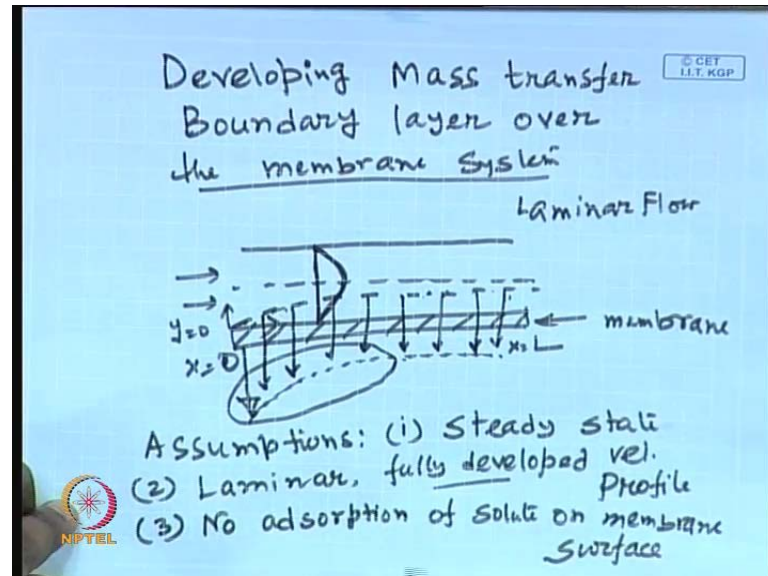 Developing Mass transfer
© CET
I.I.T. KGP
Boundary layer over
the membrane System
Laminar Flow
y=0
membrane
x=0
x=L
Assumptions: (i) Steady state
(2) Laminar, fully developed vel.
Profile
(3) No adsorption of solute on membrane
Surface
NPTEL